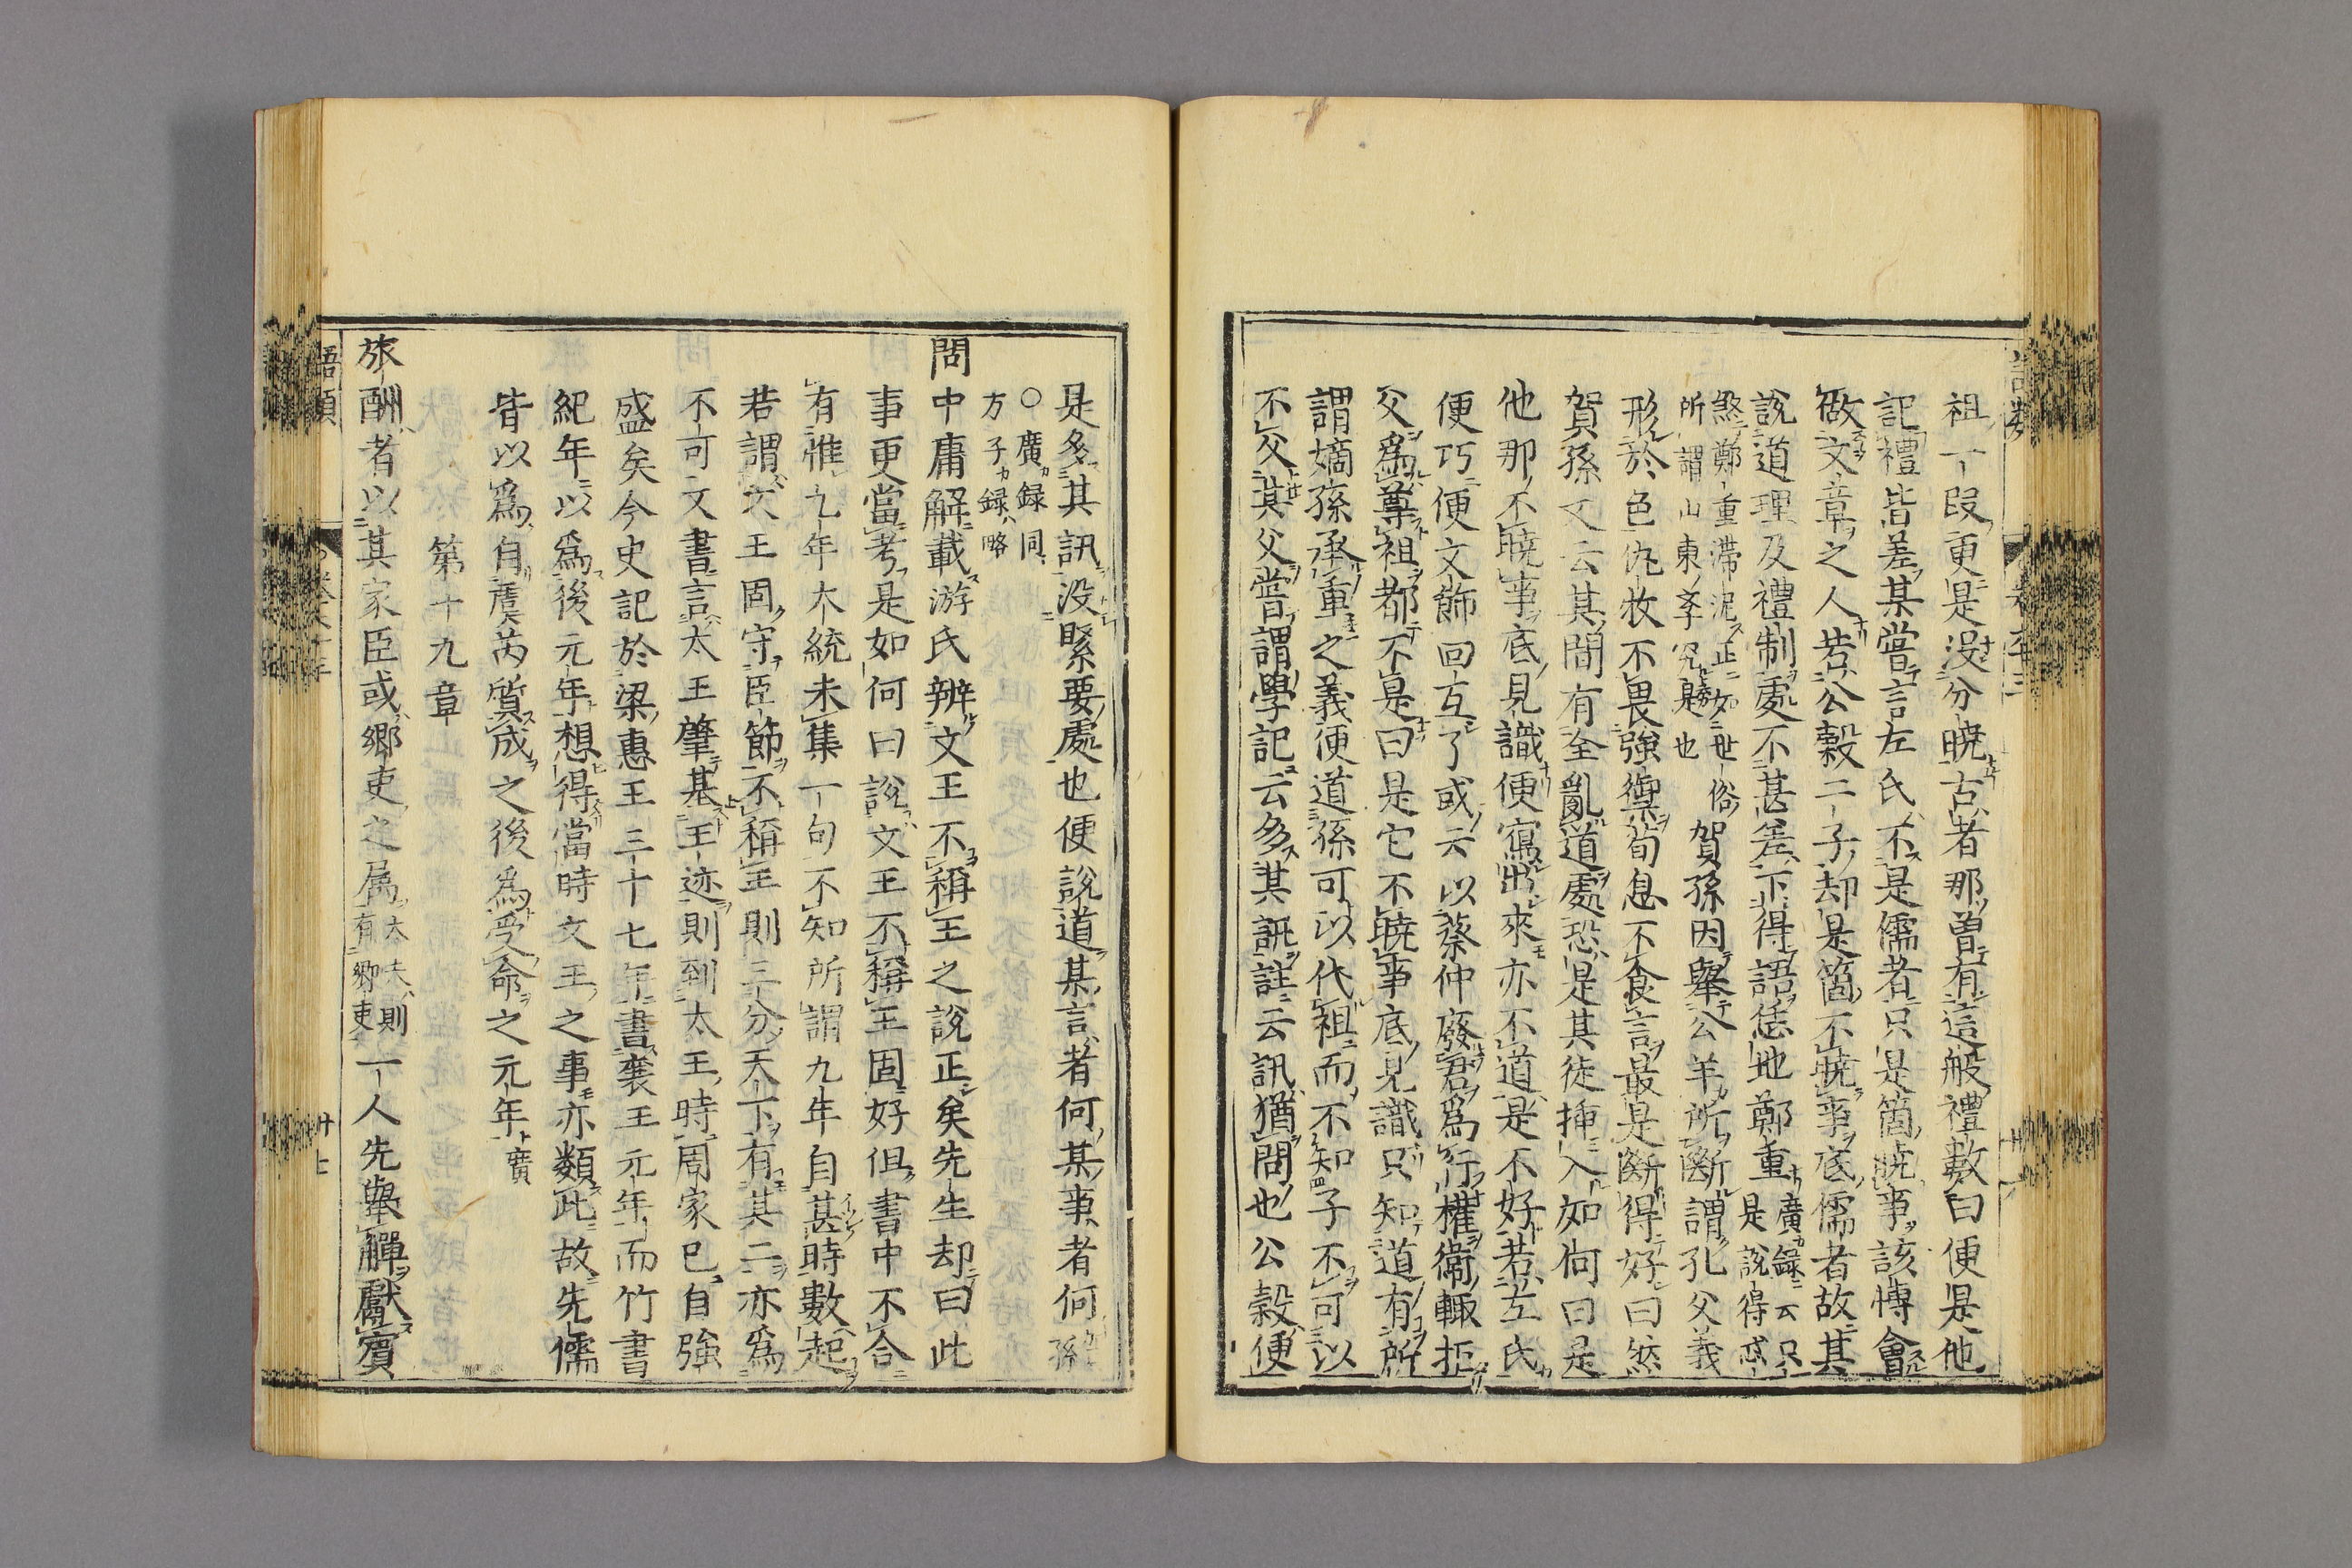 祖一段更是没分曉古者那曽有這般禮數曰便是他
記禮皆差某嘗言左氏不是儒者只是箇曉事該博會
做文章之人若公穀二子却是箇不曉事底儒者故其
說道理及禮制處不甚差下得語恁地鄭重廣録云只是說得忒
煞鄭重滯泥正如世俗所謂山東學究是也賀孫因舉公羊所斷謂孔父義
形於色仇牧不畏強禦荀息不食言最是斷得好曰然
賀孫又云其間有全亂道處恐是其徒挿入如何曰是
他那不曉事底見識便寫出來亦不道是不好若左氏
便巧便文飾回互了或云以蔡仲廢君爲行權衛輒拒
父爲尊祖都不是曰是它不曉事底見識只知道有所
謂嫡孫承重之義便道孫可以代祖而不知子不可以
不父其父嘗謂學記云多其訊註云訊猶問也公穀便
是多其訊没緊要處也便說道某言者何某事者何 孫
○廣録同方子録略
問中庸解載游氏辨文王不稱王之說正矣先生却曰此
事更當考是如何曰說文王不稱王固好但書中不合
有惟九年大統未集一句不知所謂九年自甚時數起
若謂文王固守臣節不稱王則三分天下有其二亦爲
不可文書言太王肇基王迹則到太王時周家已自強
盛矣今史記於梁惠王三十七年書襄王元年而竹書
紀年以爲後元年想得當時文王之事亦類此故先儒
皆以爲自虞芮質成之後爲受命之元年 廣
第十九章
旅酬者以其家臣或郷吏之属大夫則有郷吏一人先舉觶獻賓
語類
廿七